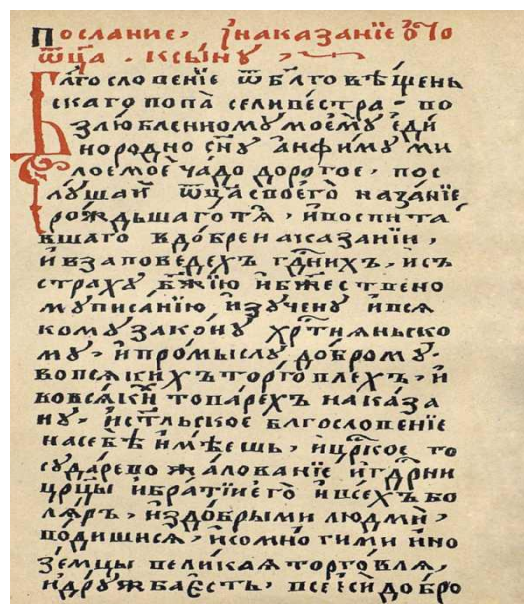 Послание, и наказанїе ѿто
ѿца . ксы́ну ,
Блгословенїе ѿ блговѣщень
скаго попа̀ селивестра - во
злюбленному моемꙋ еди
нородно сн҃ꙋ анфимꙋ ми
лоемоѐ ча́до дорогое, пос
лꙋшай ѿца своего̀ наза́нїе
рождьшаго тѧ̀, и воспита
вшаго в добрен аказанїи,
и в заповедехъ гд҃нихъ, и съ
страхꙋ бж҃їю и бж҃ествено
мꙋ писанїю, изꙋченꙋ и вся
комꙋ законꙋ хрт҃иѧньско
мꙋ, и промыслꙋ доброму.
во всѧкихъ торговлехъ, и
вовсѧки товарехъ наказа
нꙋ, и ст҃льское блгословенїе
на себѣ имѣешь, и цр҃кое го
сꙋдарево жалованїе и гд҃рни
црц҃ы и братїи его̀ и всехъ бо
лѧръ, и з добрыми людмѝ,
водишисѧ, и со много гими ино
земцы великая торговлѧ,
и дрꙋжба есть, все еси добро